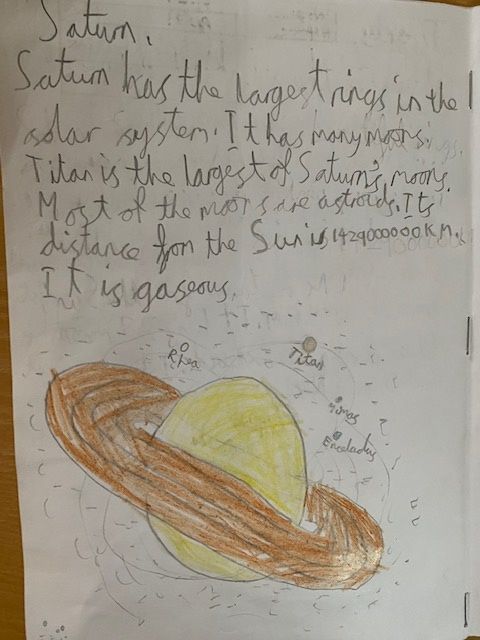 Saturn.
Saturn has the largest rings in the
solar system. It has many moons.
Titan is the largest of Saturn's moons.
Most of the moons are astroids. Its
distance fron the Sun is 1429000000KM.
It is gaseous.
Rhea
Titan
Mimas
Enceladus